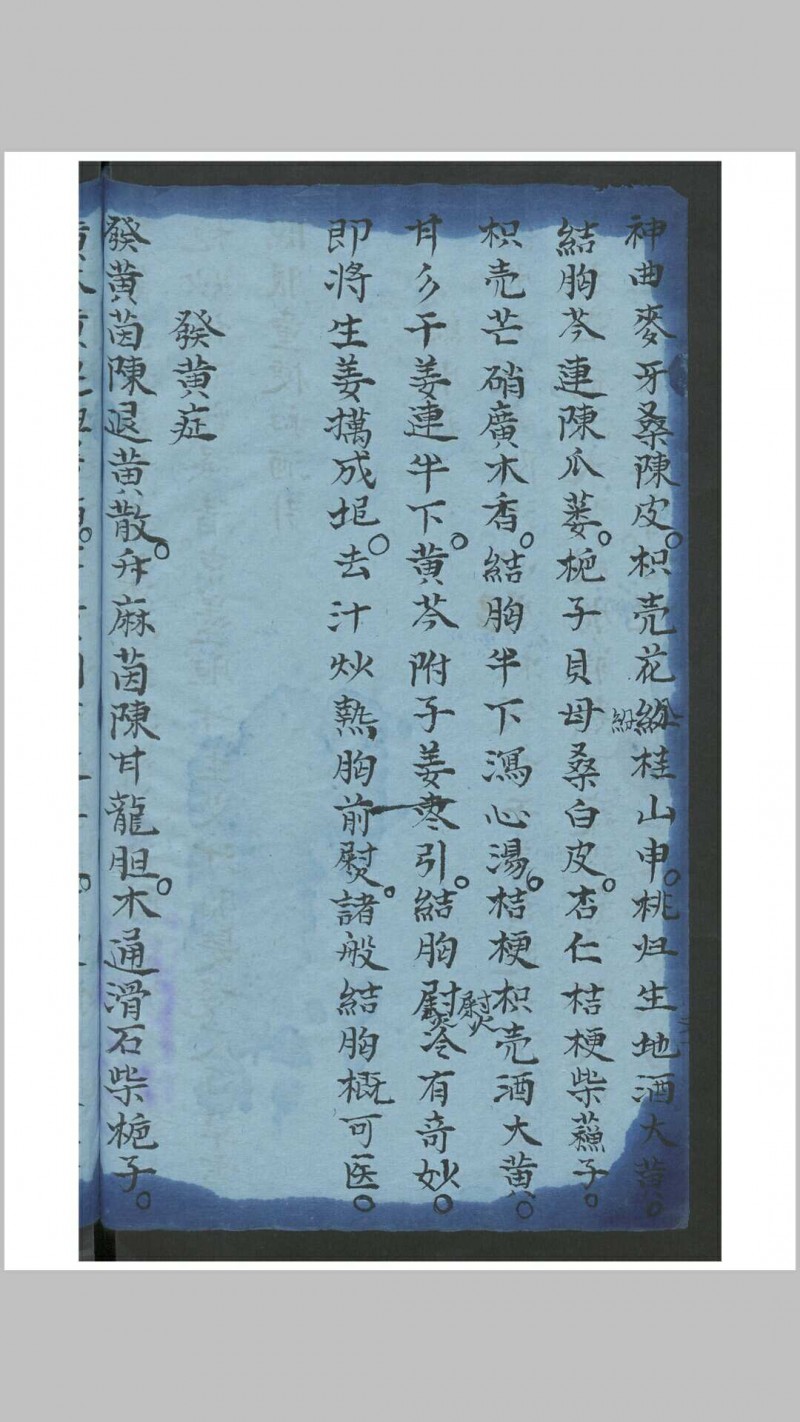 神曲麥牙桑陳皮。枳壳花紛桂山申。桃归生地酒大黄。
紛
結胸芩連陳瓜蒌。栀子貝母桑白皮。杏仁桔梗柴蘓子。
枳壳芒硝廣木香。結胸半下瀉心湯。桔梗枳壳酒大黄。
甘分干姜連半下。黄芩附子姜枣引。結胸熨冷有奇妙。
熨
即将生姜擣成坭。去汁炒熱胸前熨。諸般結胸概可医。
發黄症
發黄茵陳退黄散。升麻茵陳甘龍胆。木通滑石柴栀子。